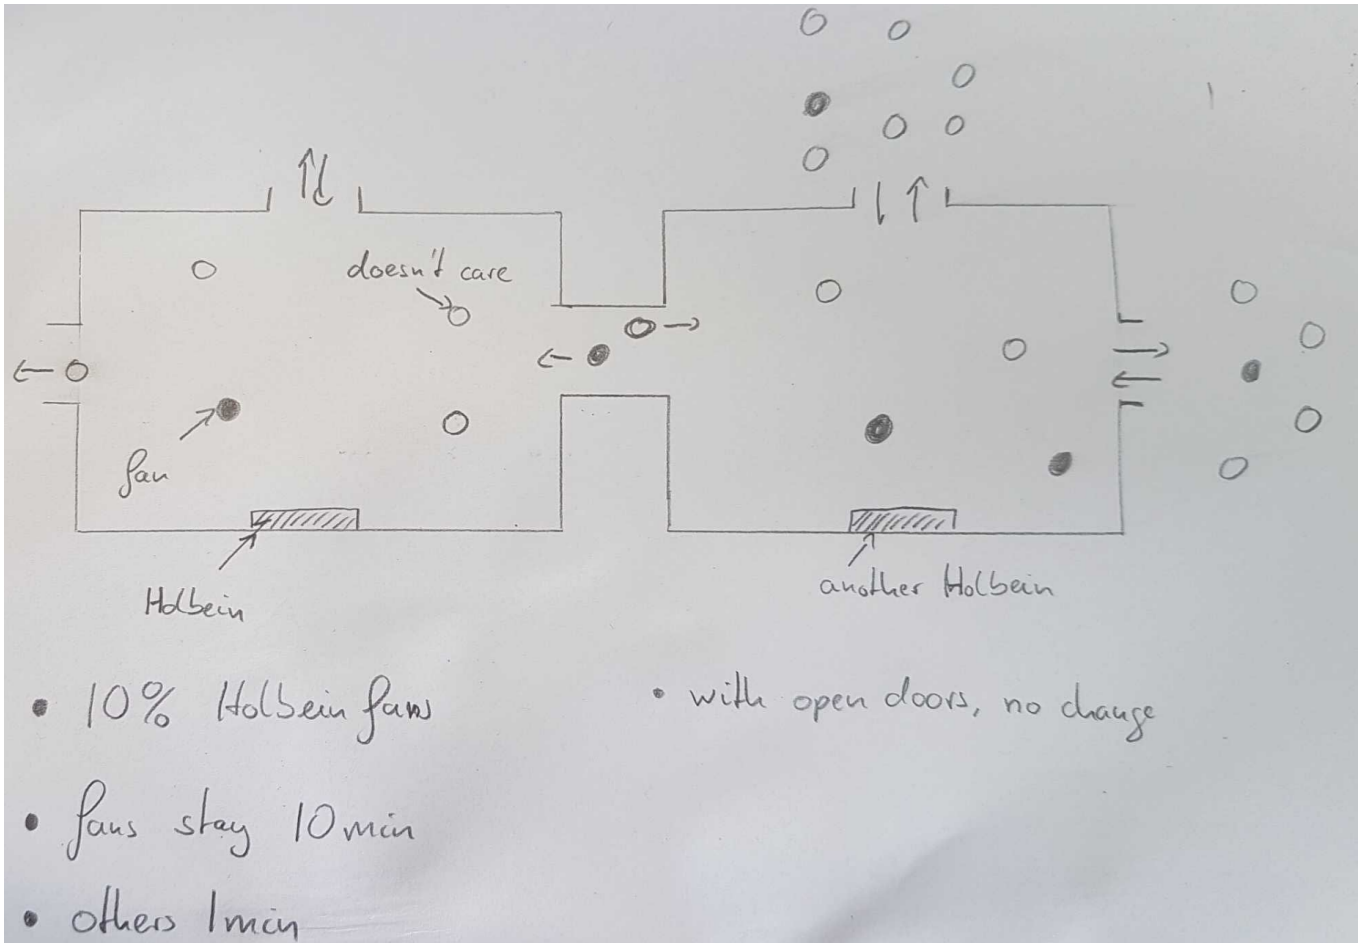 doesn't care
fan
Holbein
another Holbein
• 10% Holbein fans
• fans stay 10 min
• others 1 min
• with open doors, no change